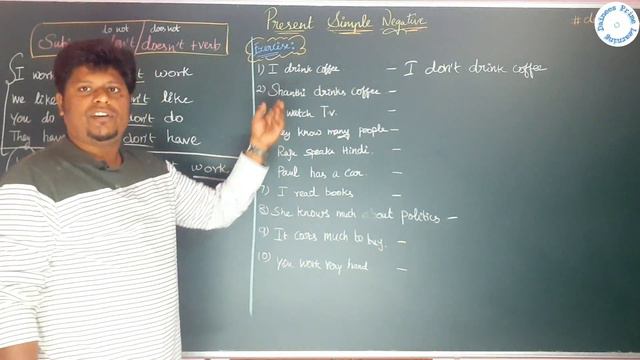 Present Simple Negative
do not does not
don't/doesn't +verb
I work work
we like like
You do don't do
They have don't have
work
Exercise:
1) I drink coffee – I don't drink coffee
2) Shanthi drinks coffee –
watch T.v. –
know many people –
Raju speaks Hindi. –
Paul has a car. –
7) I read books –
8) She knows much about politics –
9) It costs much to buy. –
10) You work very hard –
Dainees Prise Learning